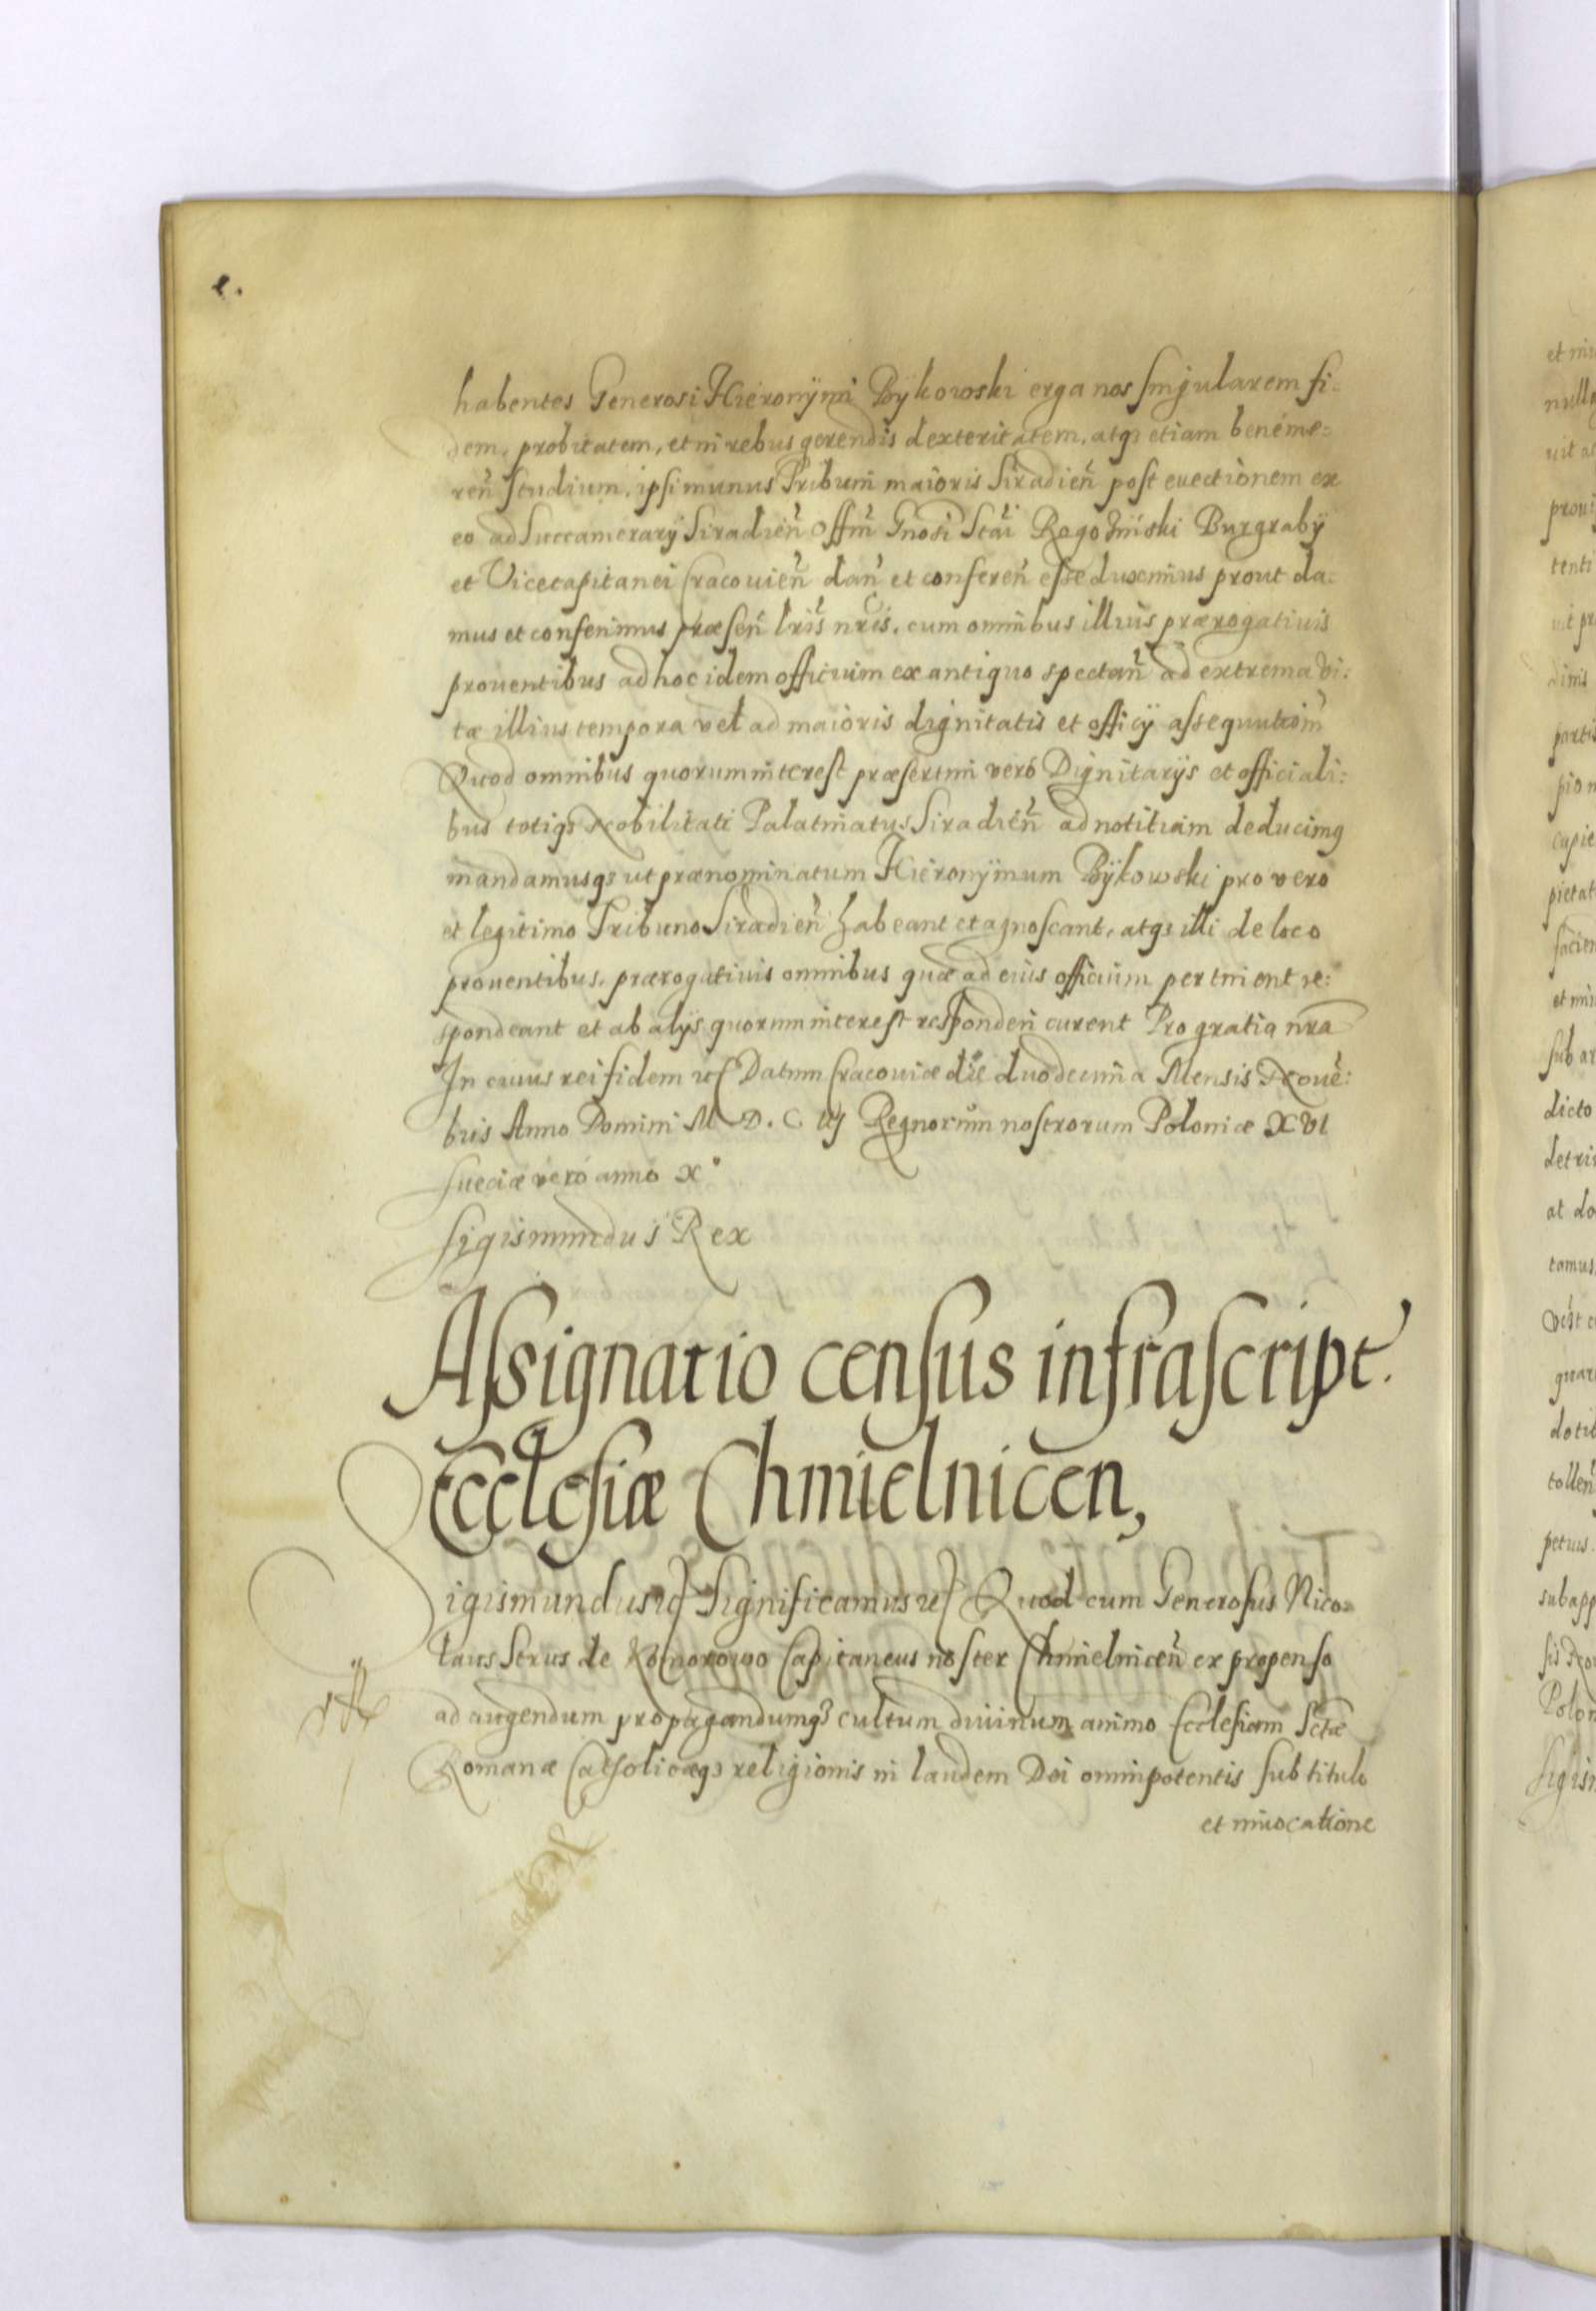 habentes Generosi Hieronÿmi Bÿkowski erga nos singularem fi=
dem, probitatem, et in rebus gerendis dexteritatem, atqȝ etiam beneme=
ren̄ studium, ipsi munus Tribum̄ maioris Siradien̄ post euectionem ex
eo ad Succamerarÿ Siradien̄ offm̄ Gnosi Stāi Burgrabÿ
et Vicecapitanei Cracouien̄ dan̄ et conferen̄ esse duximus prout da:
mus et conferimus præsen̄ lr̄is nr̄is, cum omnibus illius prærogatiuis
prouentibus ad hoc idem officium ex antiquo spectan̄ ad extrema vi:
tæ illius tempora vel ad maioris dignitatis et officÿ assequutiom̄
Quod omnibus quorum interest præsertim veró Dignitarÿs et officiali:
bus totiqȝ Nobilitati Palatinatus Siradien̄ ad notitiam deducimꝰ
mandamusqȝ ut prænominatum Hieronÿmum Bÿkowski pro vero
et legitimo Tribuno Siradien̄ habeant et agnoscant, atqȝ illi de loco
prouentibus, prærogatiuis omnibus quæ ad eius officium pertinent re:
spondeant et ab alÿs quorum interest responderi curent Pro gratia nr̄a
In cuius rei fidem etc Datum Cracouiæ die duodecima Mensis Nouē:
bris Anno Domini M. D. C. iij Regnorum nostrorum Poloniæ XVI
Sueciæ veró anno X°
Sigismundus Rex
Assignatio census infrascript.
Ecclesiæ Chmielnicen,
Sigismundus etc Significamus etc Quod cum Generosus Nico=
laus Strus de Komorowo Capitaneus noster Chmielnicen̄ ex propenso
ad augendum propagandumqȝ cultum diuinum animo Ecclesiam Sctæ
Romanæ Catholicæqȝ religionis in laudem Dei omnipotentis sub titulo
et inuocatione